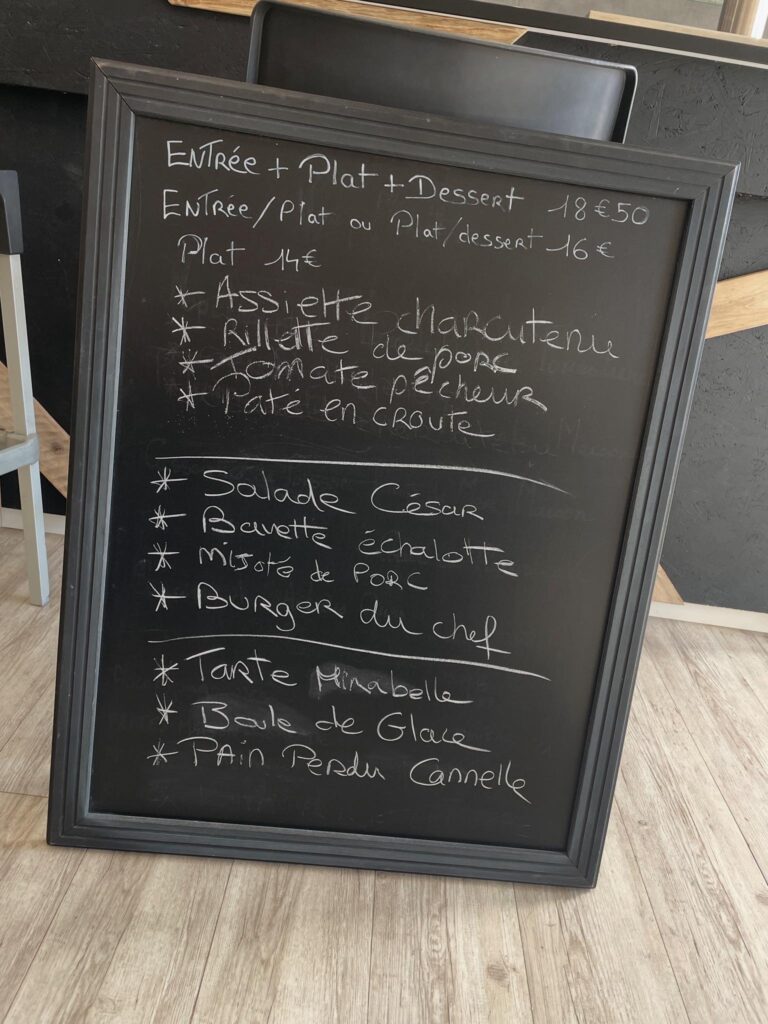 ENTRÉE + Plat + Dessert 18€50
ENTRÉE/Plat ou Plat/dessert 16€
Plat 14€
* Assiette charcuterie
* Rillette de porc
* Tomate pêcheur
* Paté en CROUTE
* Salade César
* Bavette échalotte
* Mijoté de PORC
* BURGER du chef
* Tarte Mirabelle
* Boule de Glace
* PAin Perdu Cannelle